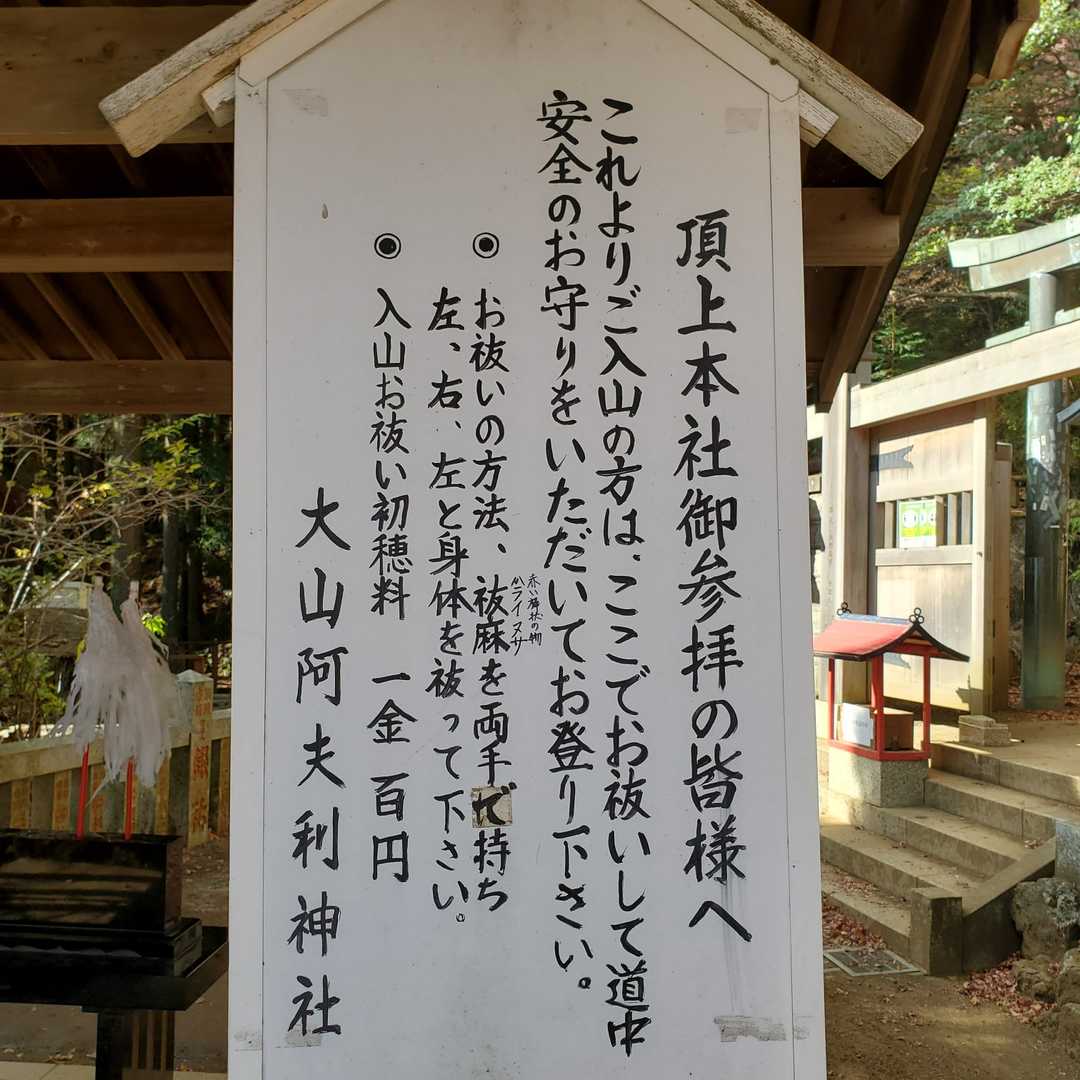 頂上本社御参拝の皆様へ
これよりご入山の方は、ここでお祓いして道中
安全のお守りをいただいてお登り下さい。
◉ お祓いの方法、祓麻を両手で持ち
赤い棒状の物
ハライヌサ
左、右、左と身体を祓って下さい。
◉ 入山お祓い初穂料 一金百円
大山阿夫利神社